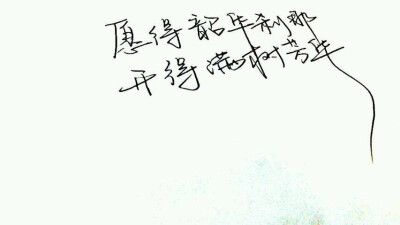 愿得韶华刹那
开得满树芳华